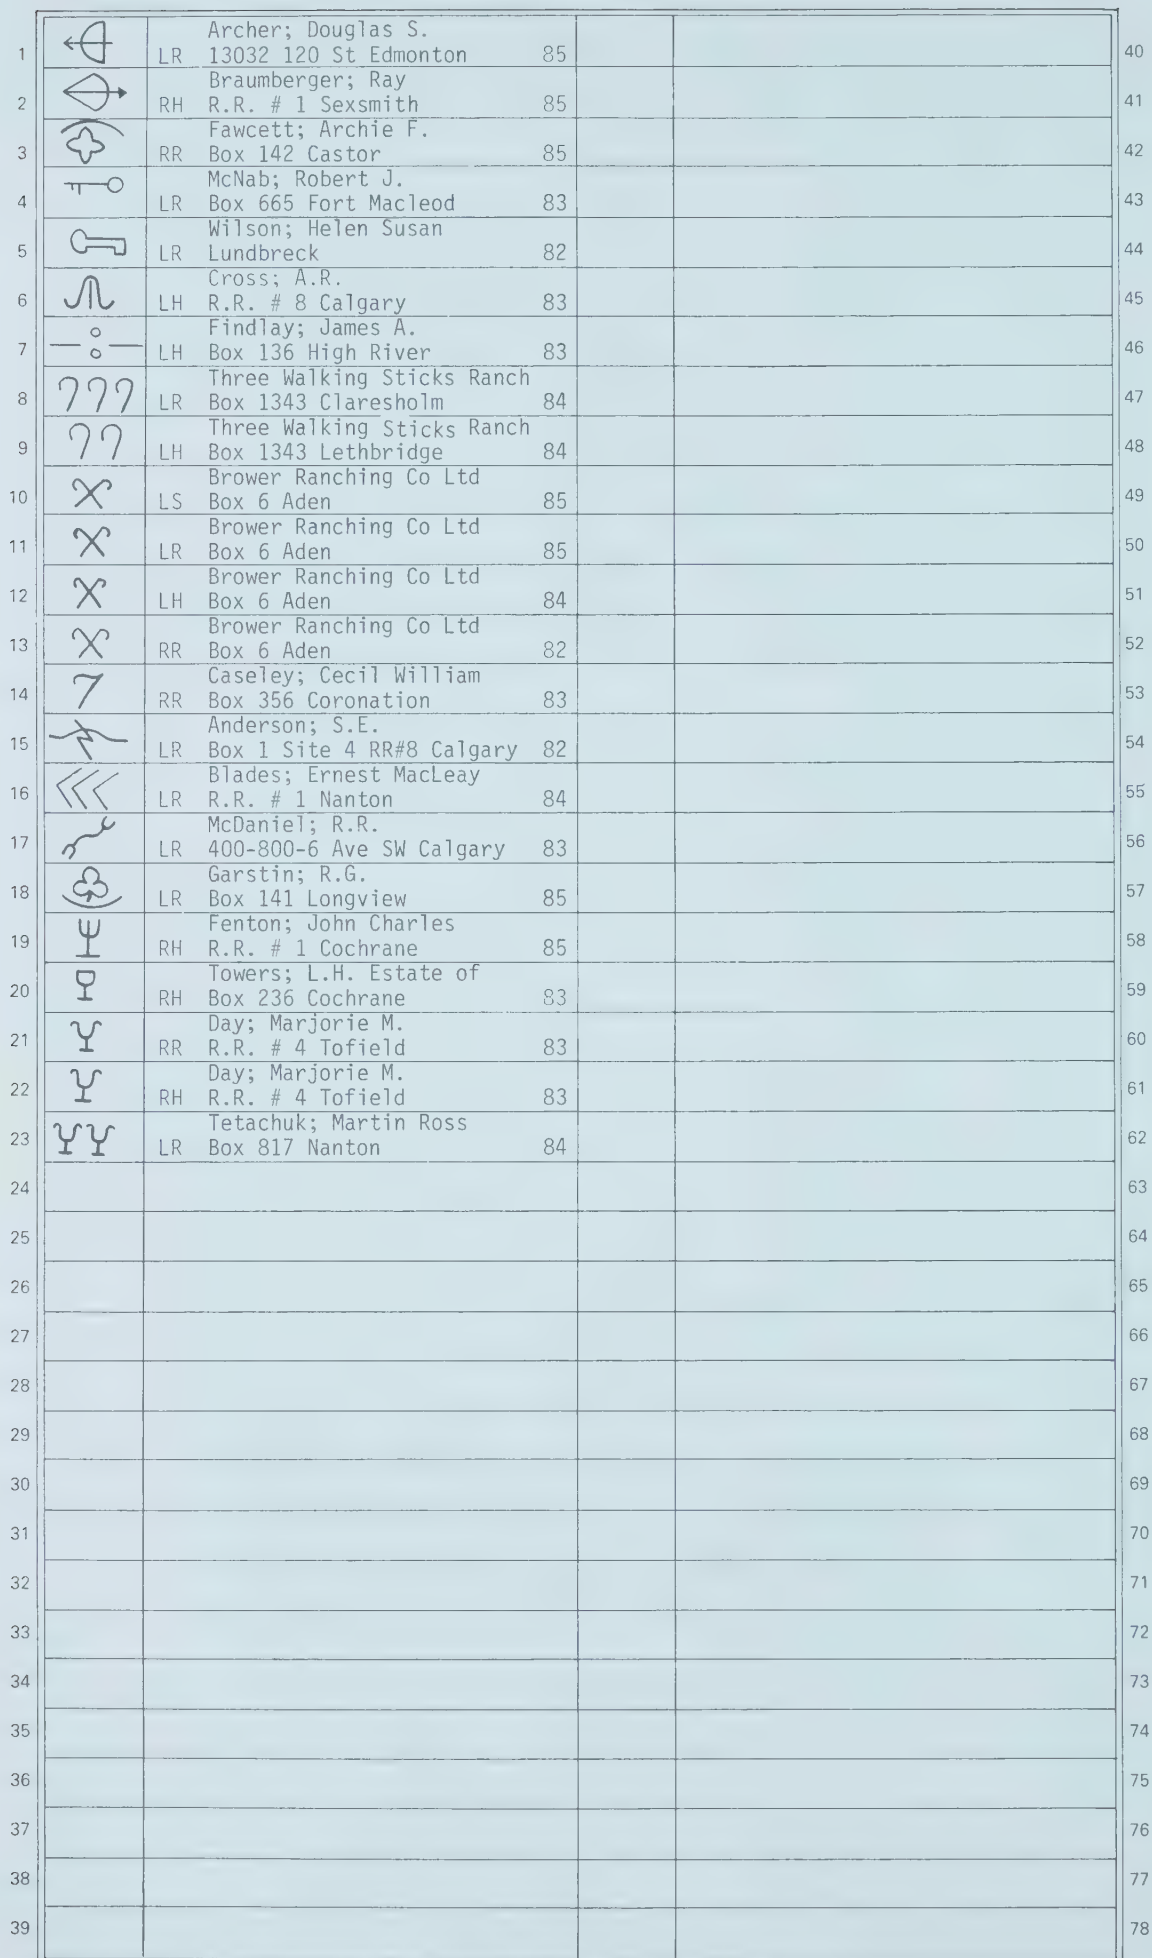 Archer; Douglas S.
1 LR 13032 120 St Edmonton 85 40
Braumberger; Ray
2 RH R.R. # 1 Sexsmith 85 41
Fawcett; Archie F.
3 RR Box 142 Castor 85 42
McNab; Robert J.
4 LR Box 665 Fort Macleod 83 43
Wilson; Helen Susan
5 LR Lundbreck 82 44
Cross; A.R.
6 LH R.R. # 8 Calgary 83 45
Findlay; James A.
7 LH Box 136 High River 83 46
Three Walking Sticks Ranch
8 LR Box 1343 Claresholm 84 47
Three Walking Sticks Ranch
9 LH Box 1343 Lethbridge 84 48
Brower Ranching Co Ltd
10 LS Box 6 Aden 85 49
Brower Ranching Co Ltd
11 LR Box 6 Aden 85 50
Brower Ranching Co Ltd
12 LH Box 6 Aden 84 51
Brower Ranching Co Ltd
13 RR Box 6 Aden 82 52
Caseley; Cecil William
14 RR Box 356 Coronation 83 53
Anderson; S.E.
15 LR Box 1 Site 4 RR#8 Calgary 82 54
Blades; Ernest MacLeay
16 LR R.R. # 1 Nanton 84 55
McDaniel; R.R.
17 LR 400-800-6 Ave SW Calgary 83 56
Garstin; R.G.
18 LR Box 141 Longview 85 57
Fenton; John Charles
19 RH R.R. # 1 Cochrane 85 58
Towers; L.H. Estate of
20 RH Box 236 Cochrane 83 59
Day; Marjorie M.
21 RR R.R. # 4 Tofield 83 60
Day; Marjorie M.
22 RH R.R. # 4 Tofield 83 61
Tetachuk; Martin Ross
23 LR Box 817 Nanton 84 62
24 63
25 64
26 65
27 66
28 67
29 68
30 69
31 70
32 71
33 72
34 73
35 74
36 75
37 76
38 77
39 78